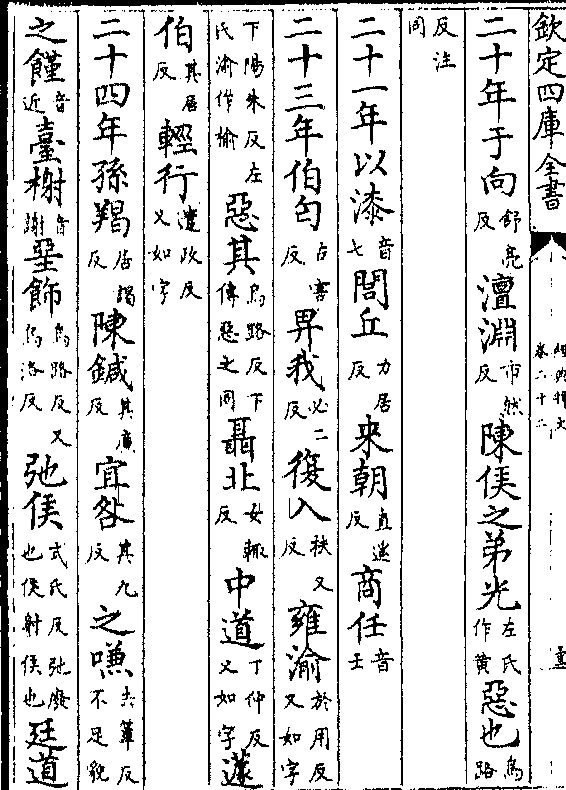 欽定四庫全書
經典釋文
卷二十二
二十年于向舒亮反澶淵市然反陳侯之弟光左氏作黄惡也烏路
反注同
二十一年以漆音七閭丘力居反來朝直遙反商任音壬
二十三年伯匄古害反畀我必二反復入扶又反雍渝於用反又如字
下陽朱反左氏渝作榆惡其烏路反下傳惡之同聶北女輒反中道丁仲反又如字蘧
伯其居反輕行遣政反又如字
二十四年孫羯居謁反陳鍼其廉反宜咎其九反之嗛去簟反不足貌
之饉音近臺榭音謝堊飾烏路反又烏洛反弛侯式氏反弛廢也侯射侯也廷道